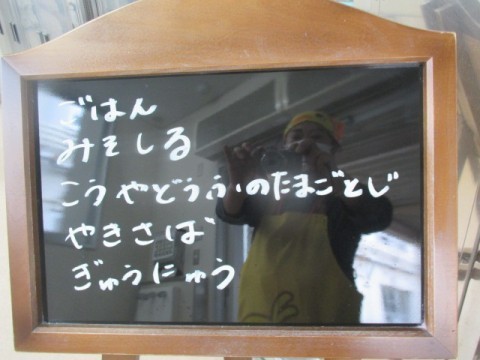 ごはん
みそしる
こうやどうふのたまごとじ
やきさば
ぎゅうにゅう